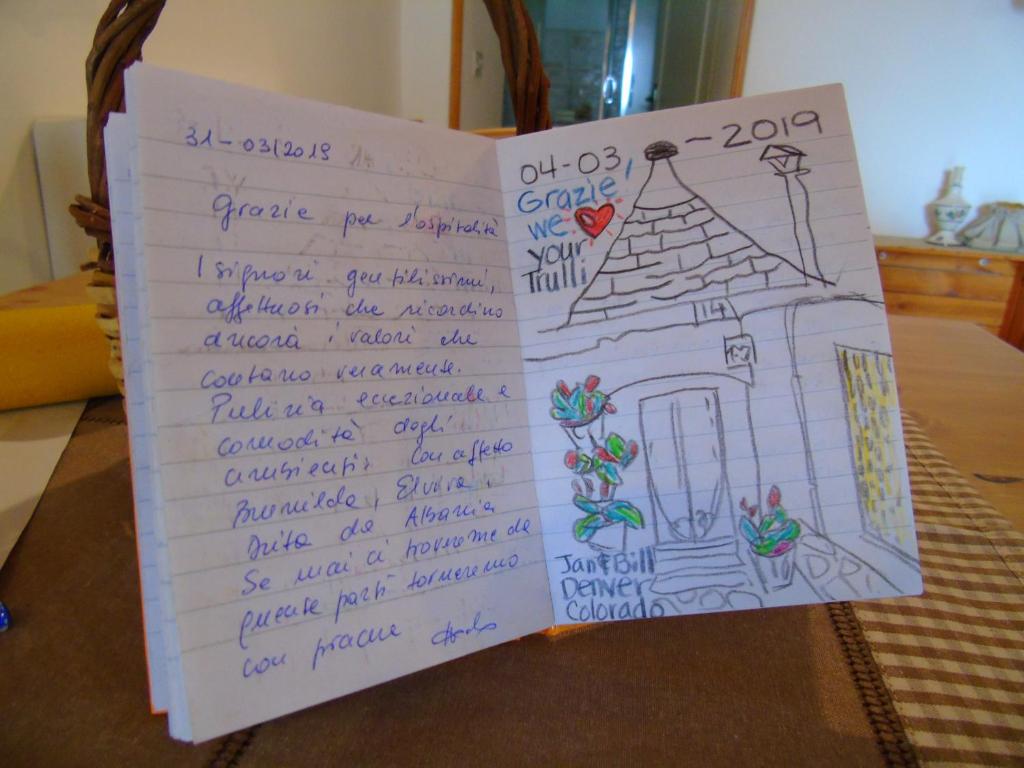 31-03/2019
Grazie per l'ospitalità
I signori gentilissimi,
affettuosi che ricordino
ancora i valori che
contano veramente.
Pulizia eccezionale e
comodità degli
ambienti. Con affetto
Brunilda, Elvira,
Drita da Albania
Se mai ci troveremo da
queste parti torneremo
con piacere
04-03-2019
Grazie,
we
your
Trulli
14
Jan & Bill
Denver
Colorado